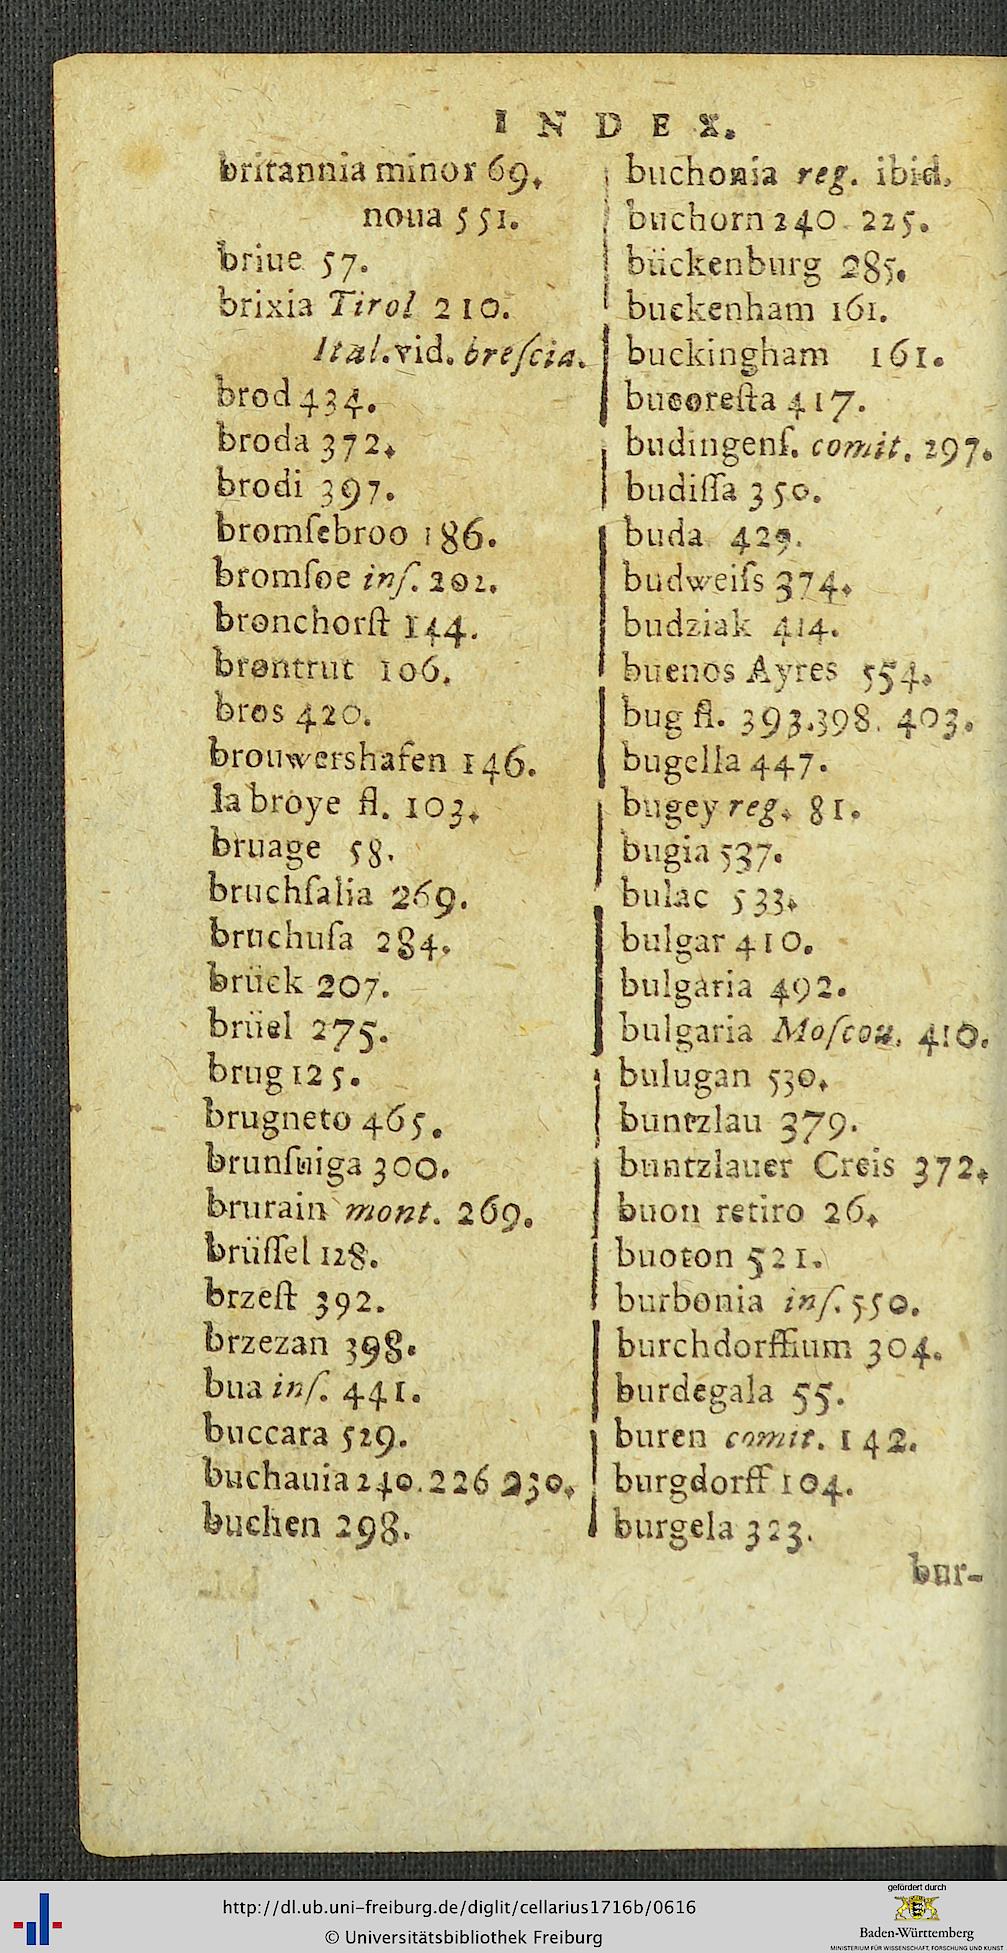 INDEX.
britannia minor 69.
noua 551.
briue 57.
brixia Tirol 210.
Ital. vid. breſcia.
brod 434.
broda 372.
brodi 397.
bromſebroo 186.
bromſoe inſ. 202.
bronchorſt 144.
brontrut 106.
bros 420.
brouwershafen 146.
la broye fl. 103.
bruage 58.
bruchſalia 269.
bruchuſa 284.
brück 207.
brüel 275.
brug 125.
brugneto 465.
brunſuiga 300.
brurain mont. 269.
brüſſel 128.
brzeſt 392.
brzezan 398.
bua inſ. 441.
buccara 529.
buchauia 240. 226 230.
buchen 298.
buchonia reg. ibid.
buchorn 240. 225.
bückenburg 285.
buckenham 161.
buckingham 161.
bucoreſta 417.
budingenſ. comit. 297.
budiſſa 350.
buda 429.
budweiſs 374.
budziak 414.
buenos Ayres 554.
bug fl. 393. 398. 403.
bugella 447.
bugey reg. 81.
bugia 537.
bulac 533.
bulgar 410.
bulgaria 492.
bulgaria Moſcou. 410.
bulugan 530.
buntzlau 379.
buntzlauer Creis 372.
buon retiro 26.
buoton 521.
burbonia inſ. 550.
burchdorffium 304.
burdegala 55.
buren comit. 142.
burgdorff 104.
burgela 323.
bur-
http://dl.ub.uni-freiburg.de/diglit/cellarius1716b/0616
© Universitätsbibliothek Freiburg
gefördert durch
Baden-Württemberg
MINISTERIUM FÜR WISSENSCHAFT, FORSCHUNG UND KUNST